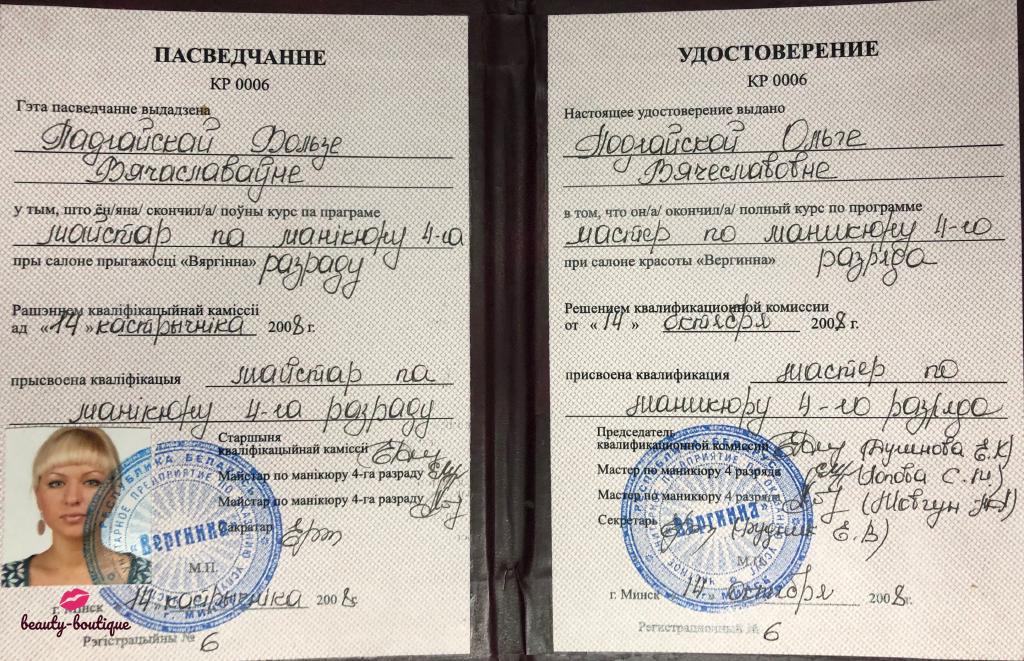 ПАСВЕДЧАННЕ
КР 0006
Гэта пасведчанне выдадзена
Падгайскай Вользе
Вячаславаўне
у тым, што ён/яна/ скончил/а/ поўны курс па праграме
майстар па манікюру 4-га
пры салоне прыгажосці «Вяргінна» разраду
Рашэннем кваліфікацыйнай каміссіі
ад «14» кастрычніка 2008 г.
прысвоена кваліфікацыя майстар па
манікюру 4-га разраду
Старшыня
кваліфікацыйнай каміссіі
Майстар по манікюру 4-га разраду
Майстар по манікюру 4-га разраду
Сакратар
М.П.
г. Минск 14 кастрычніка 2008г.
beauty-boutique
Рэгістрацыйны № 6
УДОСТОВЕРЕНИЕ
КР 0006
Настоящее удостоверение выдано
Подгайской Ольге
Вячеславовне
в том, что он/а/ окончил/а/ полный курс по программе
мастер по маникюру 4-го
при салоне красоты «Вергинна» разряда
Решением квалификационной комиссии
от «14» октября 2008 г.
присвоена квалификация мастер по
маникюру 4-го разряда
Председатель
квалификационной комиссии
Мастер по маникюру 4 разряда (Попова С.
Мастер по маникюру 4 разряда
Секретарь (Рудник Е.В)
г. Минск 14 октября 2008г.
Регистрационный № 6
РЕСПУБЛИКА БЕЛАРУСЬ
Вергинна